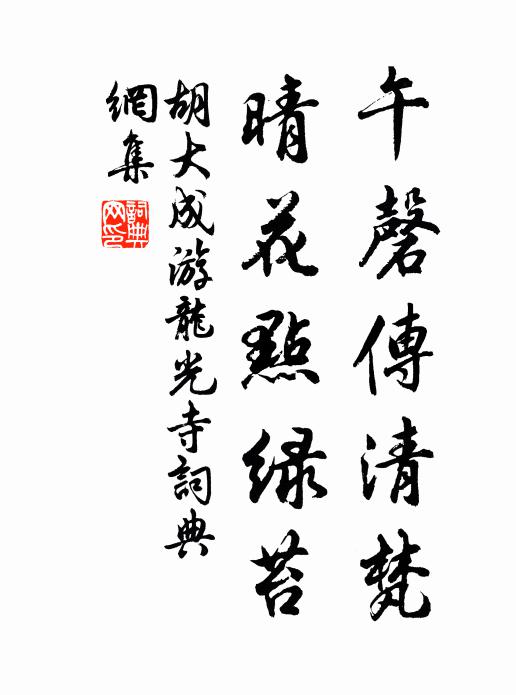 午磬傳清梵
晴花點緑苔
胡大成游龍光寺詞典
網集
詞典
网印